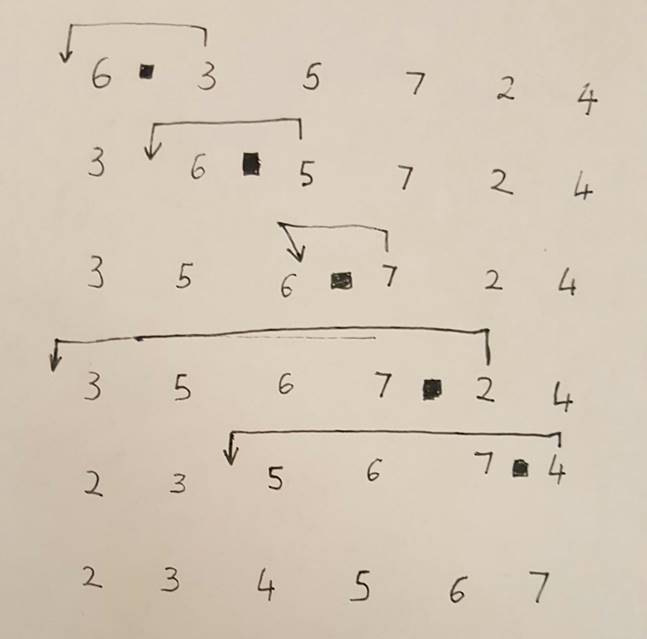 6 ■ 3 5 7 2 4
3 6 ■ 5 7 2 4
3 5 6 ■ 7 2 4
3 5 6 7 ■ 2 4
2 3 5 6 7 ■ 4
2 3 4 5 6 7